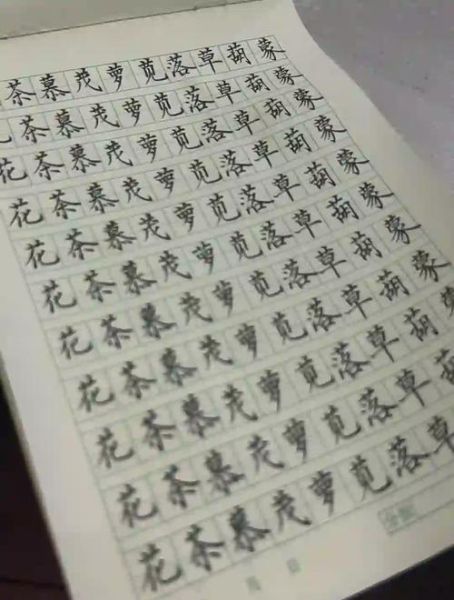 茶慕茂萝苋落草葫蒙
茶慕茂萝苋落草葫蒙
花茶慕茂萝苋落草葫蒙
花茶慕茂萝苋落草葫蒙
花茶慕茂萝苋落草葫蒙
花茶慕茂萝苋落草葫蒙
花茶慕茂萝苋落草葫蒙
花茶慕茂萝苋落草葫蒙
花茶慕茂萝苋落草葫
花茶慕茂萝苋落草葫
花茶慕茂萝苋落草